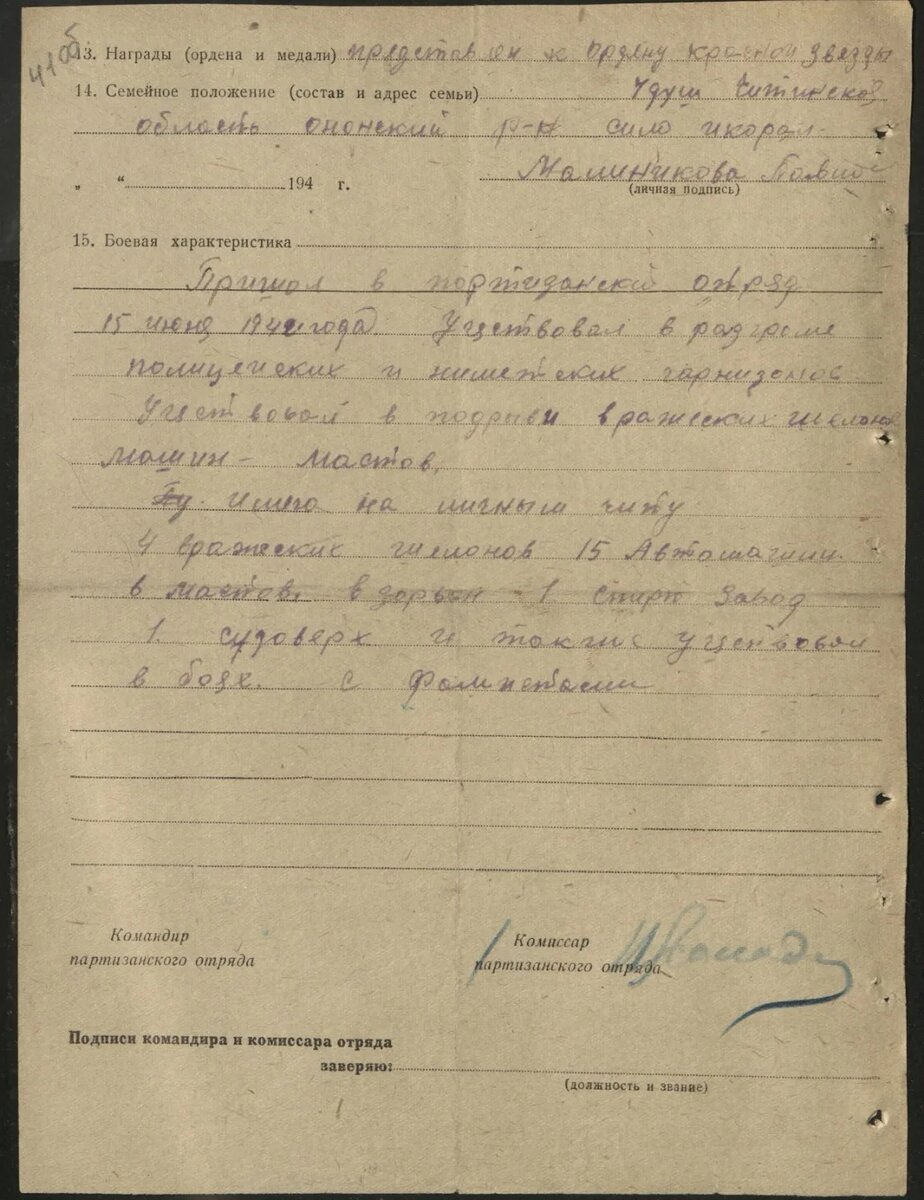 41об
13. Награды (ордена и медали) представлен к Ордену красной звезды
14. Семейное положение (состав и адрес семьи) Читинской
область ононский р-н сило
„ “ 194 г. Малиникова
(личная подпись)
15. Боевая характеристика
Пришол в портизанский отряд
15 июня года. Уцствовал в разгроме
полицейских и ниметских гарнизонов
Уцствовал в подрыви вражеских
машин - мастов,
имею на личным читу
4 вражеских 15 Автомашин
в мастов взорвон 1 Спирт Завод
1. и также уцствовал
в боях. с
Командир
партизанского отряда
Комиссар
партизанского отряда
Подписи командира и комиссара отряда
заверяю:
(должность и звание)